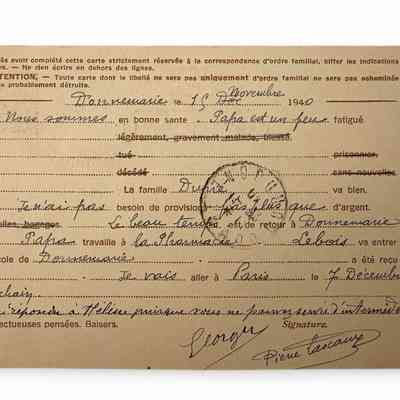 ès avoir complété cette carte strictement réservée à la correspondance d'ordre familial, biffer les indications
rs. — Ne rien écrire en dehors des lignes.
TENTION. — Toute carte dont le libellé ne sera pas uniquement d'ordre familial ne sera pas acheminée
a probablement détruite.
Novembre
Donnemarie le 15 Déc 1940
Nous sommes en bonne santé. Papa est un peu fatigué.
légèrement, gravement malade, blessé.
tué prisonnier.
décédé sans nouvelles
La famille Dupré va bien.
Je n'ai pas besoin de provisions pas plus que d'argent.
elles, bagages Le beau temps est de retour à Donnemarie
Papa travaille à la Pharmacie Lebois va entrer
cole de Donnemarie a été reçu
Je vais aller à Paris le 7 Décembre
chain
réponds à Hélène puisque vous ne pouvez servir d'interméd
ectueuses pensées. Baisers. Signature.
Georges
Pierre